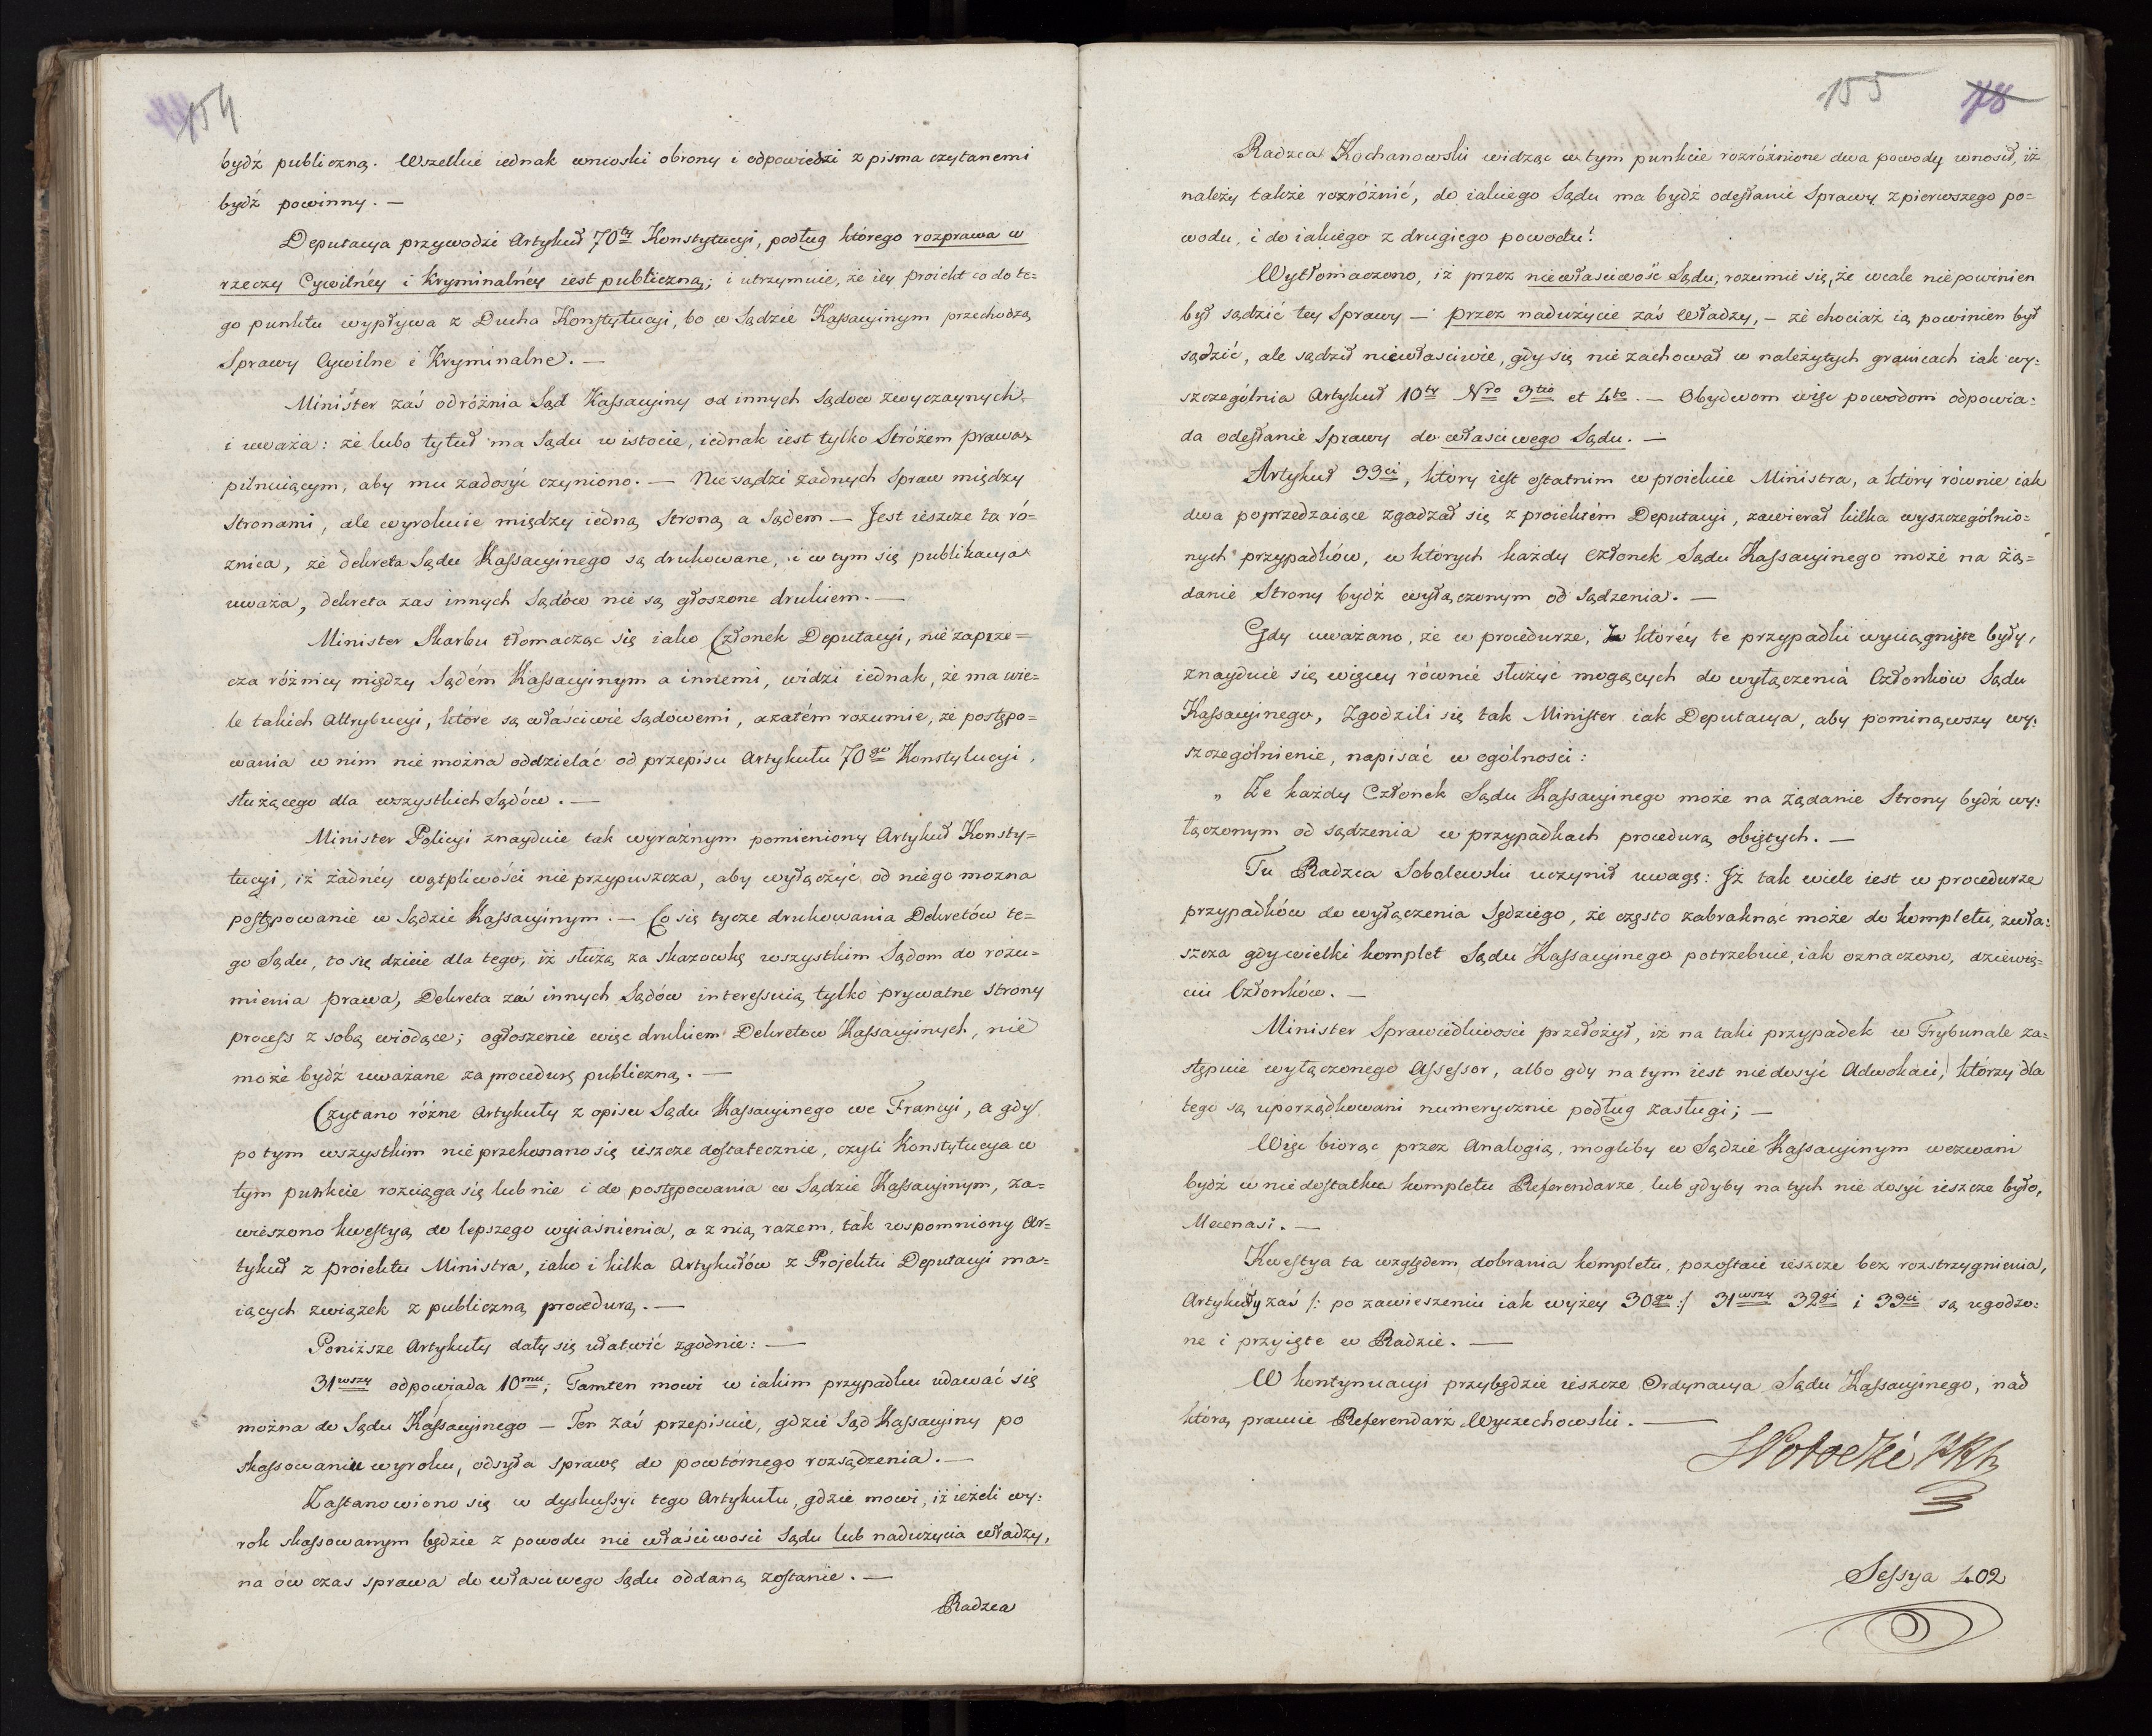 154
bydź publiczną. Wszelkie iednak wnioski obrony i odpowiedzi z pisma czytanemi
bydź powinny. —
Deputacya przywodzi Artykuł 70ty Konstytucyi, podług którego rozprawa w
rzeczy Cywilnéy i Kryminalnéy iest publiczną; i utrzymuie, że iey proiekt co do te=
go punktu wypływa z Ducha Konstytucyi, bo w Sądzie Kassacyinym przechodzą
Sprawy Cywilne i Kryminalne. —
Minister zaś odróżnia Sąd Kassacyiny od innych Sądów zwyczaynych,
i uważa: że lubo tytuł ma Sądu w istocie, iednak iest tylko Stróżem prawa,
pilnuiącym, aby mu zadosyć czyniono. — Nie sądzi żadnych Spraw między
Stronami, ale wyrokuie między iedną Stroną a Sądem — Jest ieszcze ta ró=
żnica, że dekreta Sądu Kassacyinego są drukowane, i w tym się publikacya
uważa, dekreta zas innych Sądów nie są głoszone drukiem. —
Minister Skarbu tłomacząc się iako Członek Deputacyi, nie zaprze=
cza różnicy między Sądém Kassacyinym a innemi, widzi iednak, że ma wie=
le takich attrybucyi, które są właściwie Sądowemi, azatém rozumie, że postępo=
wania w nim nie można oddzielać od przepisu Artykułu 70go Konstytucyi,
służącego dla wszystkich Sądów. —
Minister Policyi znayduie tak wyraźnym pomieniony Artykuł Konsty=
tucyi, iż żadnéy wątpliwości nie przypuszcza, aby wyłączyć od niego mozna
postępowanie w Sądzie Kassacyinym. — Co się tycze drukowania Dekretów te=
go Sądu, to się dzieie dla tego, iż służą za skazowkę wszystkim Sądom do rozu=
mienia prawa, Dekreta zaś innych Sądów interessuią tylko prywatne strony
process z sobą wiodące; ogłoszenie więc drukiem Dekretow Kassacyinych, nie
może bydź uważane za procedurę publiczną. —
Czytano różne Artykuły z opisu Sądu Kassacyinego we Francyi, a gdy
po tym wszystkim nie przekonano się ieszcze dostatecznie, czyli Konstytucya w
tym punkcie rozciąga się lub nie i do postępowania w Sądzie Kassacyinym, za=
wieszono kwestyą do lepszego wyiaśnienia, a z nią razem, tak wspomniony Ar=
tykuł z proiektu Ministra, iako i kilka Artykułów z Projektu Deputacyi ma=
iących związek z publiczną procedurą. —
Poniższe Artykuły dały się ułatwić zgodnie: —
31wszy odpowiada 10mu; Tamten mowi w iakim przypadku udawać się
można do Sądu Kassacyinego — Ten zaś przepisuie, gdzie Sąd Kassacyiny po
skassowaniu wyroku, odsyła sprawę do powtórnego rozsądzenia. —
Zastanowiono się w dyskussyi tego Artykułu, gdzie mowi, iż ieżeli wy=
rok skassowanym będzie z powodu nie właściwosci Sądu lub nadużycia władzy,
na ów czas sprawa do własciwego Sądu oddaną zostanie. —
Radzca
155
178
Radzca Kochanowski widząc w tym punkcie rozróżnione dwa powody wnosił, iż
należy także rozróżnić, do iakiego Sądu ma bydź odesłanie Sprawy z pierwszego po=
wodu, i do iakiego z drugiego powodu!
Wytłomaczono, iż przez niewłasciwość Sądu, rozumie się, że wcale niepowinien
był sądzić tey Sprawy — przez nadużycie zaś Władzy, — że chociaż ią powinien był
sądzić, ale sądził niewłasciwie, gdy się nie zachował w należytych granicach iak wy=
szczególnia Artykuł 10ty Nro 3tio et 4to. — Obydwom więc powodom odpowia=
da odesłanie Sprawy do własciwego Sądu. —
Artykuł 33ci, który iest ostatnim w proiekcie Ministra, a który równie iak
dwa poprzedzaiące zgadzał się z proiektém Deputacyi, zawierał kilka wyszczególnio=
nych przypadków, w których każdy członek Sądu Kassacyinego może na żą=
danie Strony bydź wyłączonym od sądzenia. —
Gdy uważano, że w procedurze, w któréy te przypadki wyciągnięte były,
znayduie się więcey równie służyć mogących do wyłączenia Członków Sądu
Kassacyinego, Zgodzili się tak Minister iak Deputacya, aby pominąwszy wy=
szczególnienie, napisać w ogólnosci:
„ Że każdy Członek Sądu Kassacyinego może na żądanie Strony bydź wy=
łączonym od sądzenia w przypadkach procedurą obiętych. —
Tu Radzca Sobolewski uczynił uwagę: Iż tak wiele iest w procedurze
przypadków do wyłączenia Sędziego, że często zabraknąć może do kompletu, zwła=
szcza gdy wielki komplet Sądu Kassacyinego potrzebuie, iak oznaczono, dziewię=
ciu Członków. —
Minister Sprawiedliwosci przełożył, iż na taki przypadek w Trybunale za=
stępuie wyłączonego Assessor, albo gdy na tym iest niedosyć Adwokaci, którzy dla
tego są uporządkowani numerycznie podług zasługi; —
Więc biorąc przez Analogią, mogliby w Sądzie Kassacyinym wezwani
bydź w niedostatku kompletu Referendarze, lub gdyby na tych nie dosyć ieszcze było,
Mecenasi. —
Kwestya ta względem dobrania kompletu, pozostaie ieszcze bez rozstrzygnienia,
Artykuły zaś /: po zawieszeniu iak wyżey 30go :/ 31wszy 32gi i 33ci są ugodzo=
ne i przyięte w Radzie. —
W kontynuacyi przybędzie ieszcze Ordynacya Sądu Kassacyinego, nad
którą pracuie Referendarz Wyczechowski. —
Sessya 402